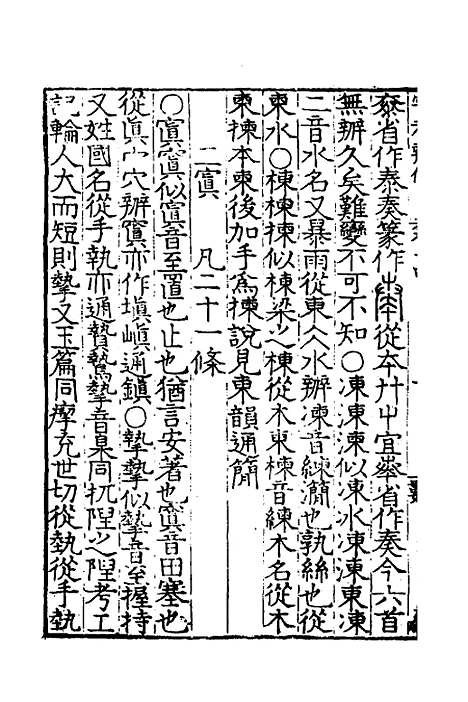 桼省作泰奏篆作𡴀從夲廾屮宜𡴀省作奏今六首
無辨久矣難變不可不知〇凍涷湅似凍水凍涷東凍
二音水名又暴雨從東人水辨湅音練㶕也孰絲也從
柬水〇棟楝揀似棟梁之棟從木東楝音練木名從木
柬揀本柬後加手爲揀說見東韻通簡
二寘　凡二十一條
〇寘窴似寘音至置也止也猶言安著也窴音田塞也
從眞宀穴辨窴亦作塡嵮通鎮〇摯㙯似摯音至握持
又姓國名從手執亦通贄鷙㙯音臬同扤隉之隉考工
記輪人大而短則㙯又玉篇同摩充世切從埶從手執